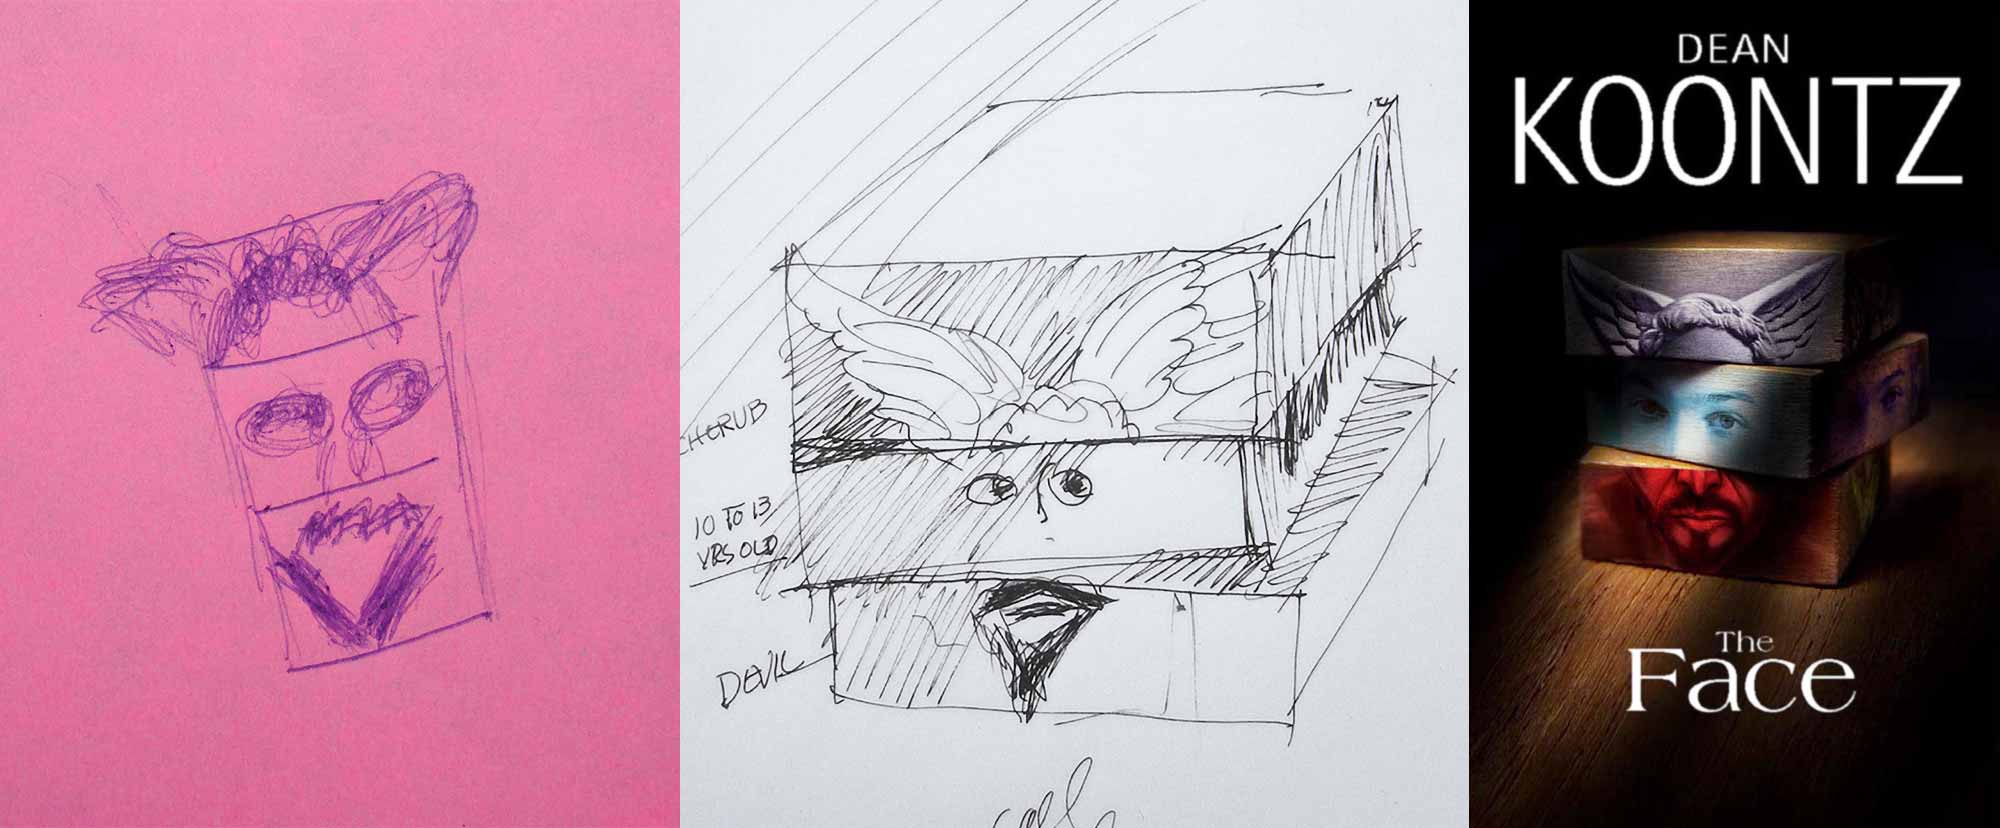 CHERUB
10 TO 13
YRS OLD
DEVIL
DEAN
KOONTZ
The
Face